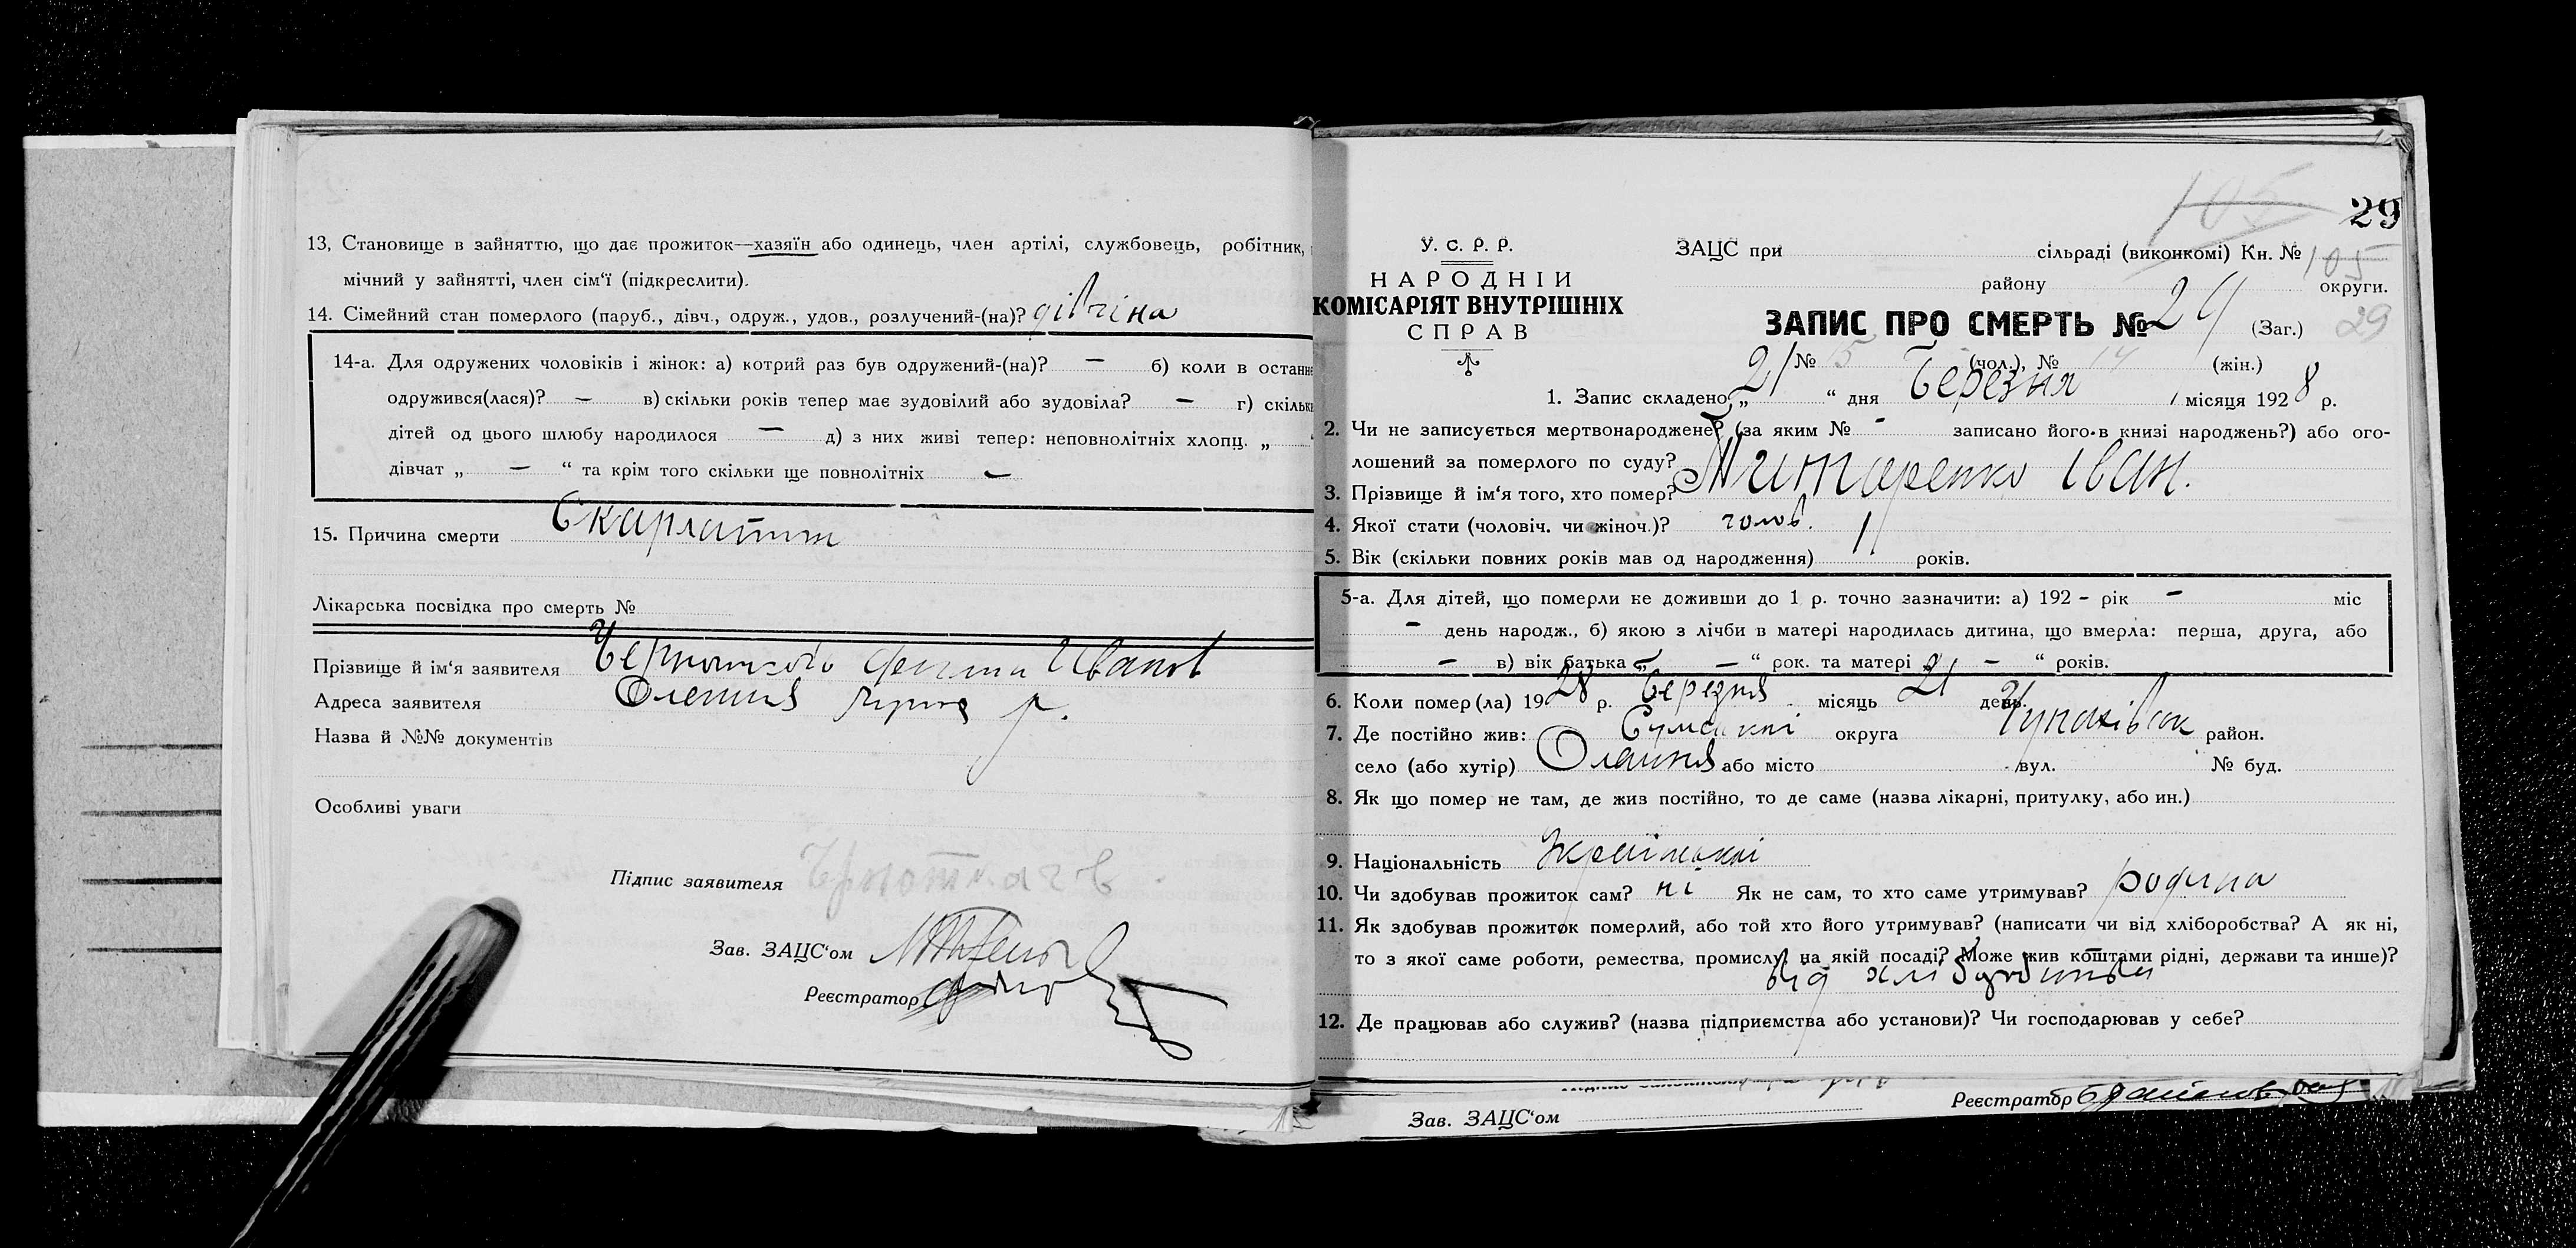 13, Становище в зайняттю, що дає прожиток—хазяїн або одинець, член артілі, службовець, робітник,
мічний у зайнятті, член сім‘ї (підкреслити).
14. Сімейний стан померлого (паруб., дівч., одруж., удов., розлучений-(на)? дівчіна
14-а. Для одружених чоловіків і жінок: а) котрий раз був одружений-(на)? — б) коли в останнє
одружився(лася)? — в) скільки років тепер має зудовілий або зудовіла? — г) скільки
дітей од цього шлюбу народилося — д) з них живі тепер: неповнолітніх хлопц. „
дівчат „ — “ та крім того скільки ще повнолітніх —
15. Причина смерти Скарлатит
Лікарська посвідка про смерть №
Прізвище й ім‘я заявителя Иванов
Адреса заявителя
Назва й №№ документів
Особливі уваги
Підпис заявителя
Зав. ЗАЦС‘ом
Реєстратор
29
105
У. С. Р. Р.
НАРОДНІЙ
КОМІСАРІЯТ ВНУТРІШНІХ
СПРАВ
ЗАЦС при сільраді (виконкомі) Кн. № 105
району округи.
ЗАПИС ПРО СМЕРТЬ № 29 (Заг.) 29
№ 15 (чол.), № 14 (жін.)
1. Запис складено „ 21 “ дня Березня місяця 1928 р.
2. Чи не записується мертвонароджене? (за яким № - записано його в книзі народжень?) або ого-
лошений за померлого по суду?
3. Прізвище й ім‘я того, хто помер? Титаренко Іван.
4. Якої стати (чоловіч. чи жіноч.)? чолов.
5. Вік (скільки повних років мав од народження) 1 років.
5-а. Для дітей, що померли не доживши до 1 р. точно зазначити: а) 192 - рік - міс
- день народж., б) якою з лічби в матері народилась дитина, що вмерла: перша, друга, або
— в) вік батька „ — “ рок. та матері „ — “ років.
6. Коли помер(ла) 1928 р. Березня місяць 21 день.
7. Де постійно жив: Сумської округа район.
село (або хутір) або місто вул. № буд.
8. Як що помер не там, де жив постійно, то де саме (назва лікарні, притулку, або ин.)
9. Національність Української
10. Чи здобував прожиток сам? ні Як не сам, то хто саме утримував? родина
11. Як здобував прожиток померлий, або той хто його утримував? (написати чи від хліборобства? А як ні,
то з якої саме роботи, ремества, промислу, на якій посаді? Може жив коштами рідні, держави та инше)?
від
12. Де працював або служив? (назва підприємства або установи)? Чи господарював у себе?
Зав. ЗАЦС‘ом
Реєстратор